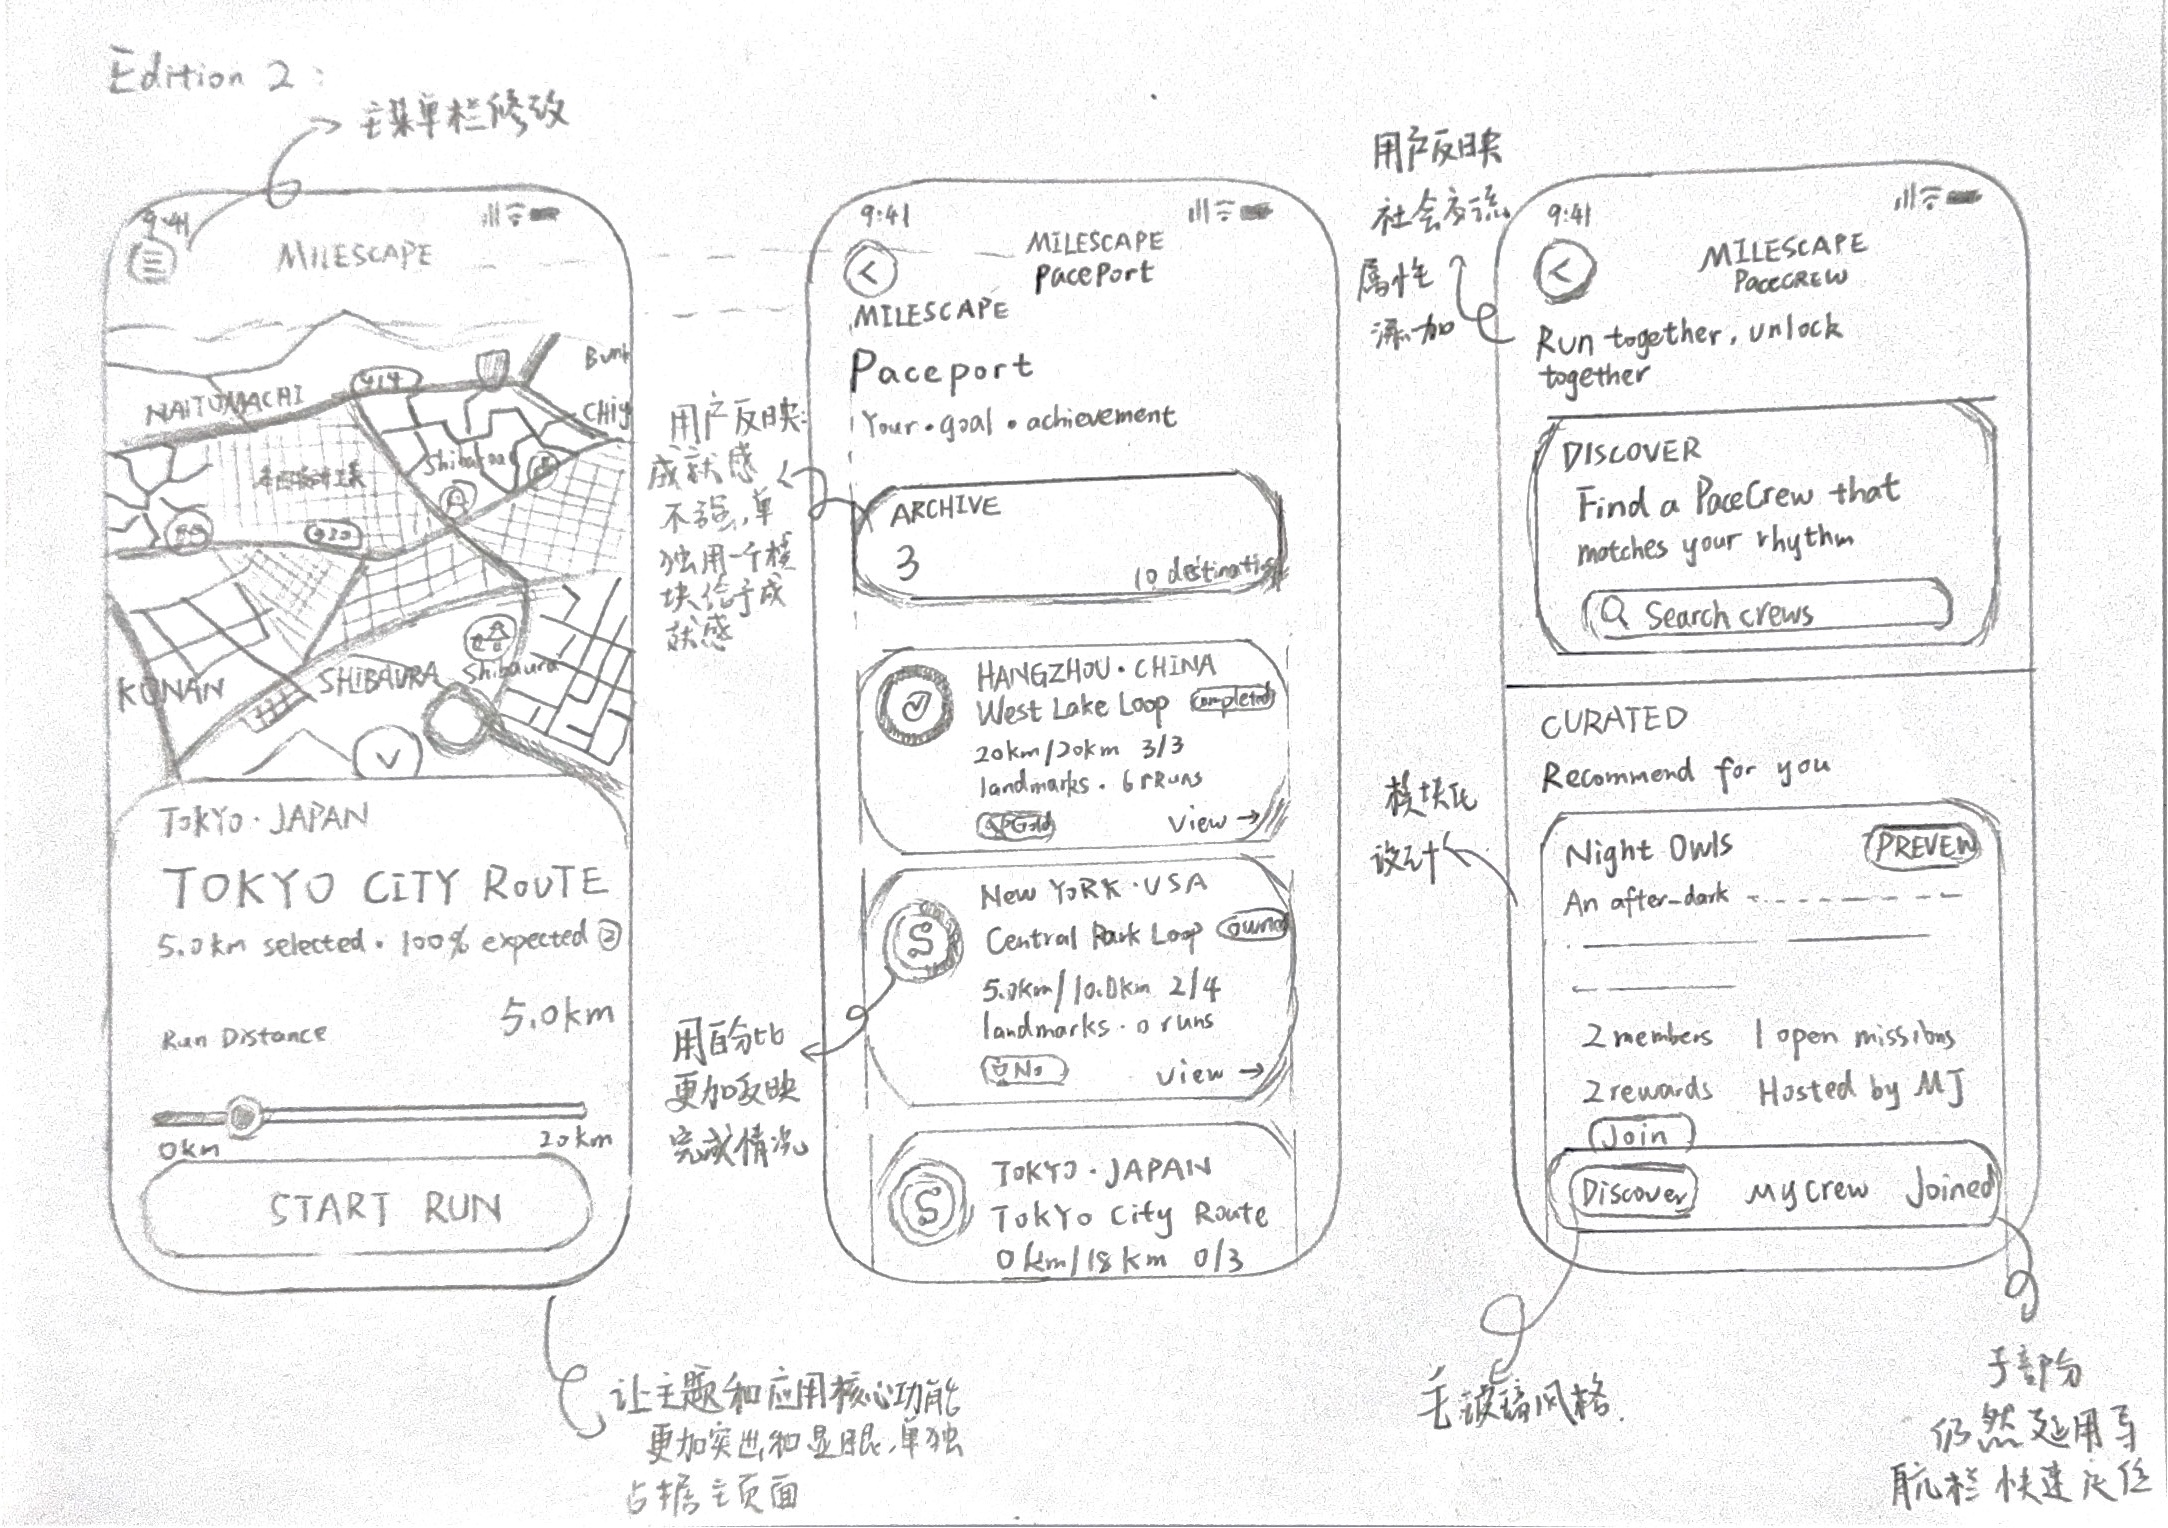 Edition 2 :
主菜单栏修改
9:41
MILESCAPE
NAITOMACHI
414
Bun
CHiy
KONAN
SHIBAURA
Shibaura
TOKYO · JAPAN
TOKYO CITY ROUTE
5.0km selected · 100% expected
Run Distance
5.0km
0km
20km
START RUN
让主题和应用核心功能
更加突出和显眼,单独
占据主页面
用户反映:
成就感
不强,单
独用一个模
块给予成
就感
用百分比
更加反映
完成情况
9:41
MILESCAPE
PacePort
MILESCAPE
Paceport
Your · goal · achievement
ARCHIVE
3
10 destinatio
HANGZHOU · CHINA
West Lake Loop
completed
20km/20km 3/3
landmarks · 6 rRuns
Gold
View →
New YORK · USA
Central Park Loop
5.0km/10.0km 2/4
landmarks · 0 runs
No
view →
TOKYO · JAPAN
TOKYO City Route
0km/18km 0/3
用户反映
社会交流
属性
添加
模块化
设计
9:41
MILESCAPE
PACECREW
Run together, unlock
together
DISCOVER
Find a PaceCrew that
matches your rhythm
Search crews
CURATED
Recommend for you
Night Owls
PREVEW
An after-dark
2 members
1 open missions
2 rewards
Hosted by MJ
Join
Discover
My Crew
Joined
毛玻璃风格.
子部分
仍然延用导
航栏快速定位